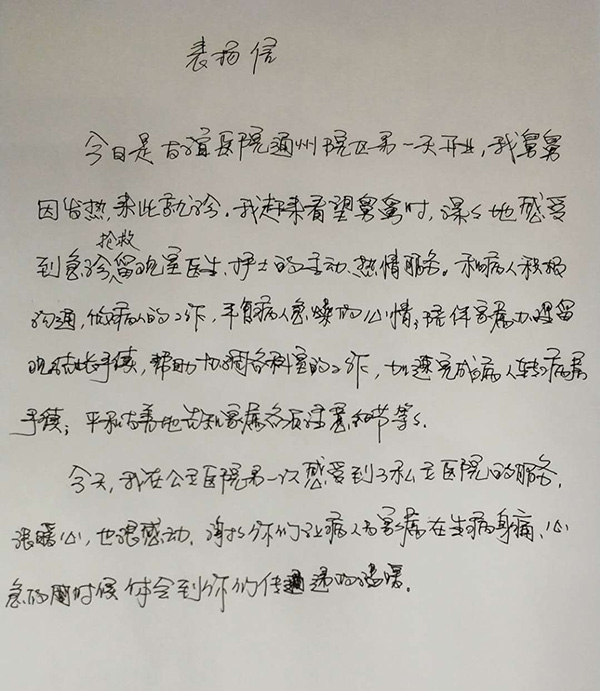 表扬信
今日是友谊医院通州院区第一天开业，我舅舅
因发热，来此就诊。我赶来看望舅舅时，深深地感受
抢救
到急诊留观室医生、护士的主动、热情服务。和病人积极
沟通，做病人的工作，平复病人急燥的心情；陪伴家属办理留
观结账手续，帮助协调各科室的工作，加速完成病人转病房
手续；平和友善地告知家属各项注意细节等等。
今天，我在公立医院第一次感受到了私立医院的服务，
很暖心，也很感动，谢谢你们让病人家属在生病身痛、心
急的时候体会到你们传递的温暖。